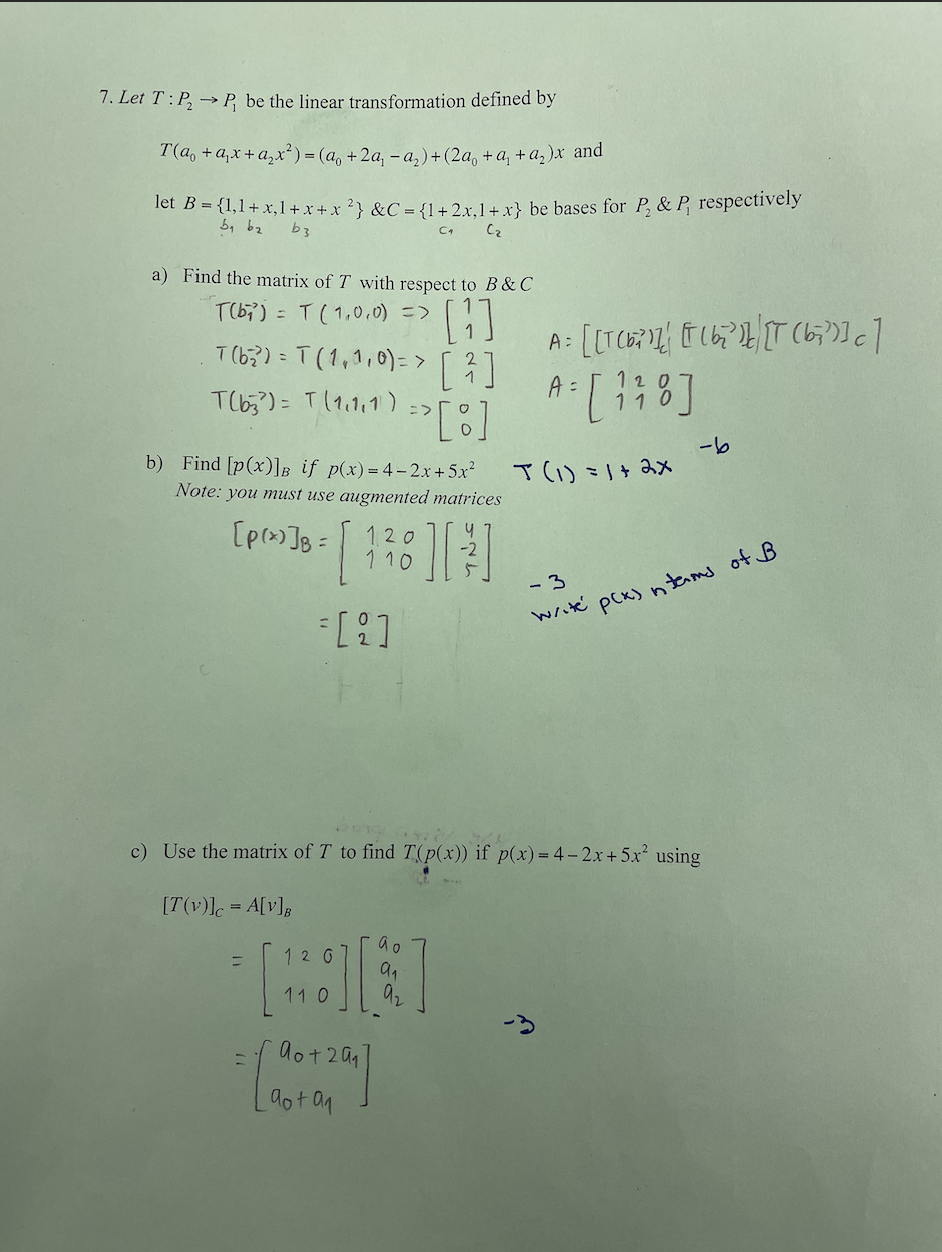 7. Let T : P₂ → P₁ be the linear transformation defined by
T(a₀ + a₁x + a₂x²) = (a₀ + 2a₁ − a₂) + (2a₀ + a₁ + a₂)x and
let B = {1,1 + x,1 + x + x ²} & C = {1 + 2x,1 + x} be bases for P₂ & P₁ respectively
b₁ b₂ b₃ C₁ C₂
a) Find the matrix of T with respect to B & C
T(b₁) = T(1,0,0) => [1 1]
T(b₂) = T(1,1,0) => [2 1]
T(b₃) = T(1,1,1) => [0 0]
A = [[T(b₁)]c | [T(b₂)]c | [T(b₃)]c]
A = [1 2 0
1 1 0]
-6
b) Find [p(x)]B if p(x) = 4 − 2x + 5x²
T(1) = 1 + 2x
Note: you must use augmented matrices
[p(x)]B = [1 2 0
1 1 0] [4
-2
5]
= [0
2]
-3
write p(x) n terms of B
c) Use the matrix of T to find T(p(x)) if p(x) = 4 − 2x + 5x² using
[T(v)]C = A[v]B
= [1 2 0
1 1 0] [a₀
a₁
a₂]
-3
= [a₀ + 2a₁
a₀ + a₁]